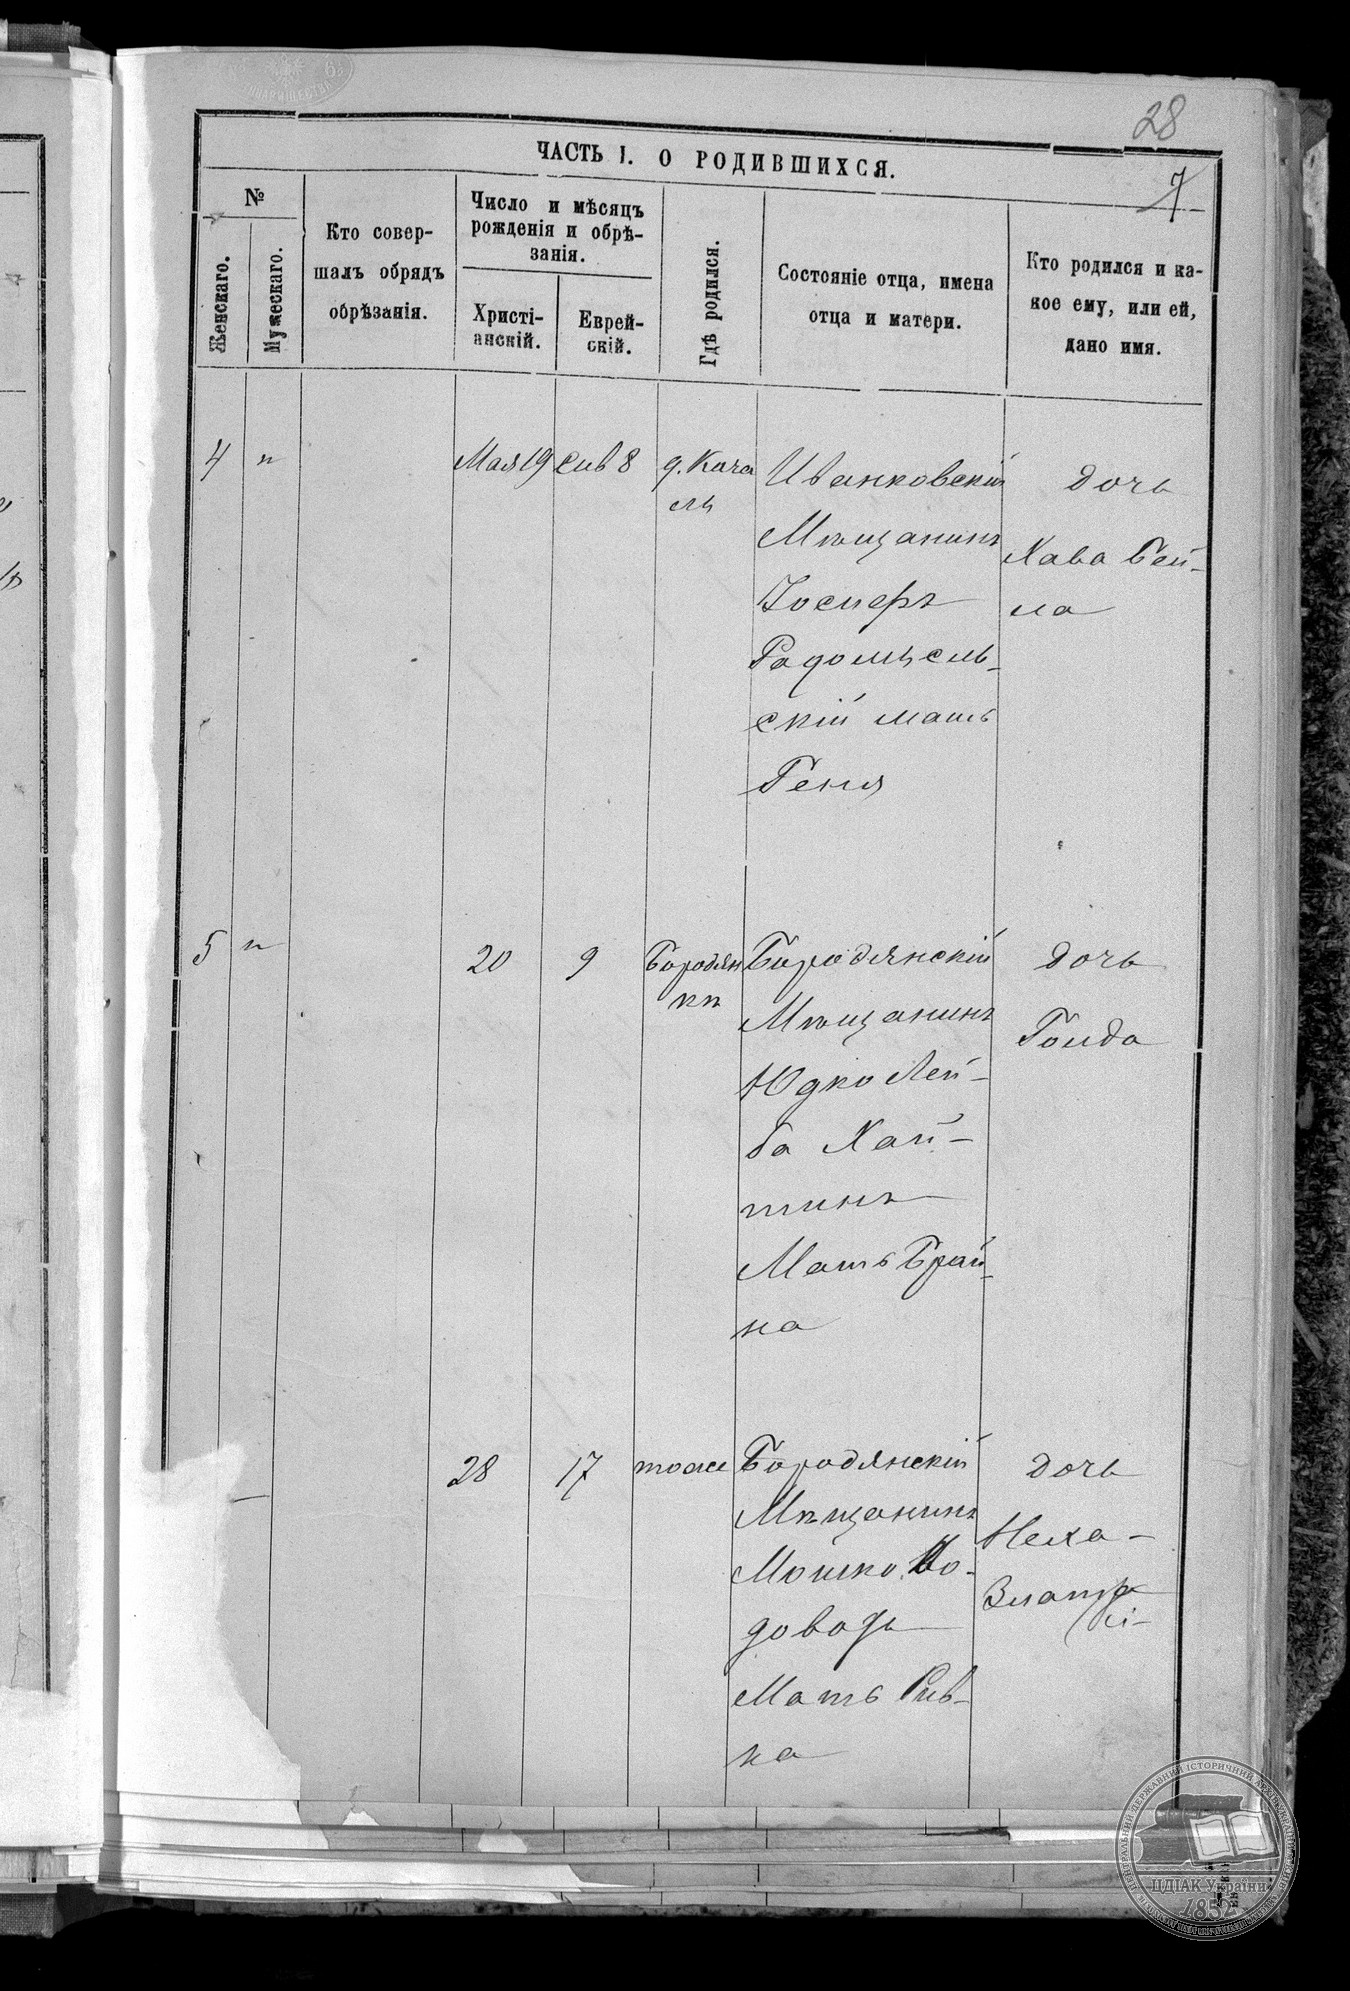 28
ЧАСТЬ I. О РОДИВШИХСЯ.
7
№
Женскаго.
Мужескаго.
Кто совер-
шалъ обрядъ
обрѣзанія.
Число и мѣсяцъ
рожденія и обрѣ-
занія.
Христі-
анскій.
Еврей-
скій.
Гдѣ родился.
Состояніе отца, имена
отца и матери.
Кто родился и ка-
кое ему, или ей,
дано имя.
4 "
Мая 19
Сив 8
д. Кача
лы
Иванковскій
Мѣщанинъ
Іосперъ
Радомысль-
скій мать
Геня
дочь
Хава Бей-
ла
5 "
20
9
Бородян
кѣ
Бородянскій
Мѣщанинъ
Юдко Лей-
ба Хай-
тинъ
Мать Брай-
на
дочь
Голда
28
17
тоже
Бородянскій
Мѣщанинъ
Мошко Во-
довозъ
Мать Рив-
ка
дочь
Неха-
Злата
ЦДІАК України
1852